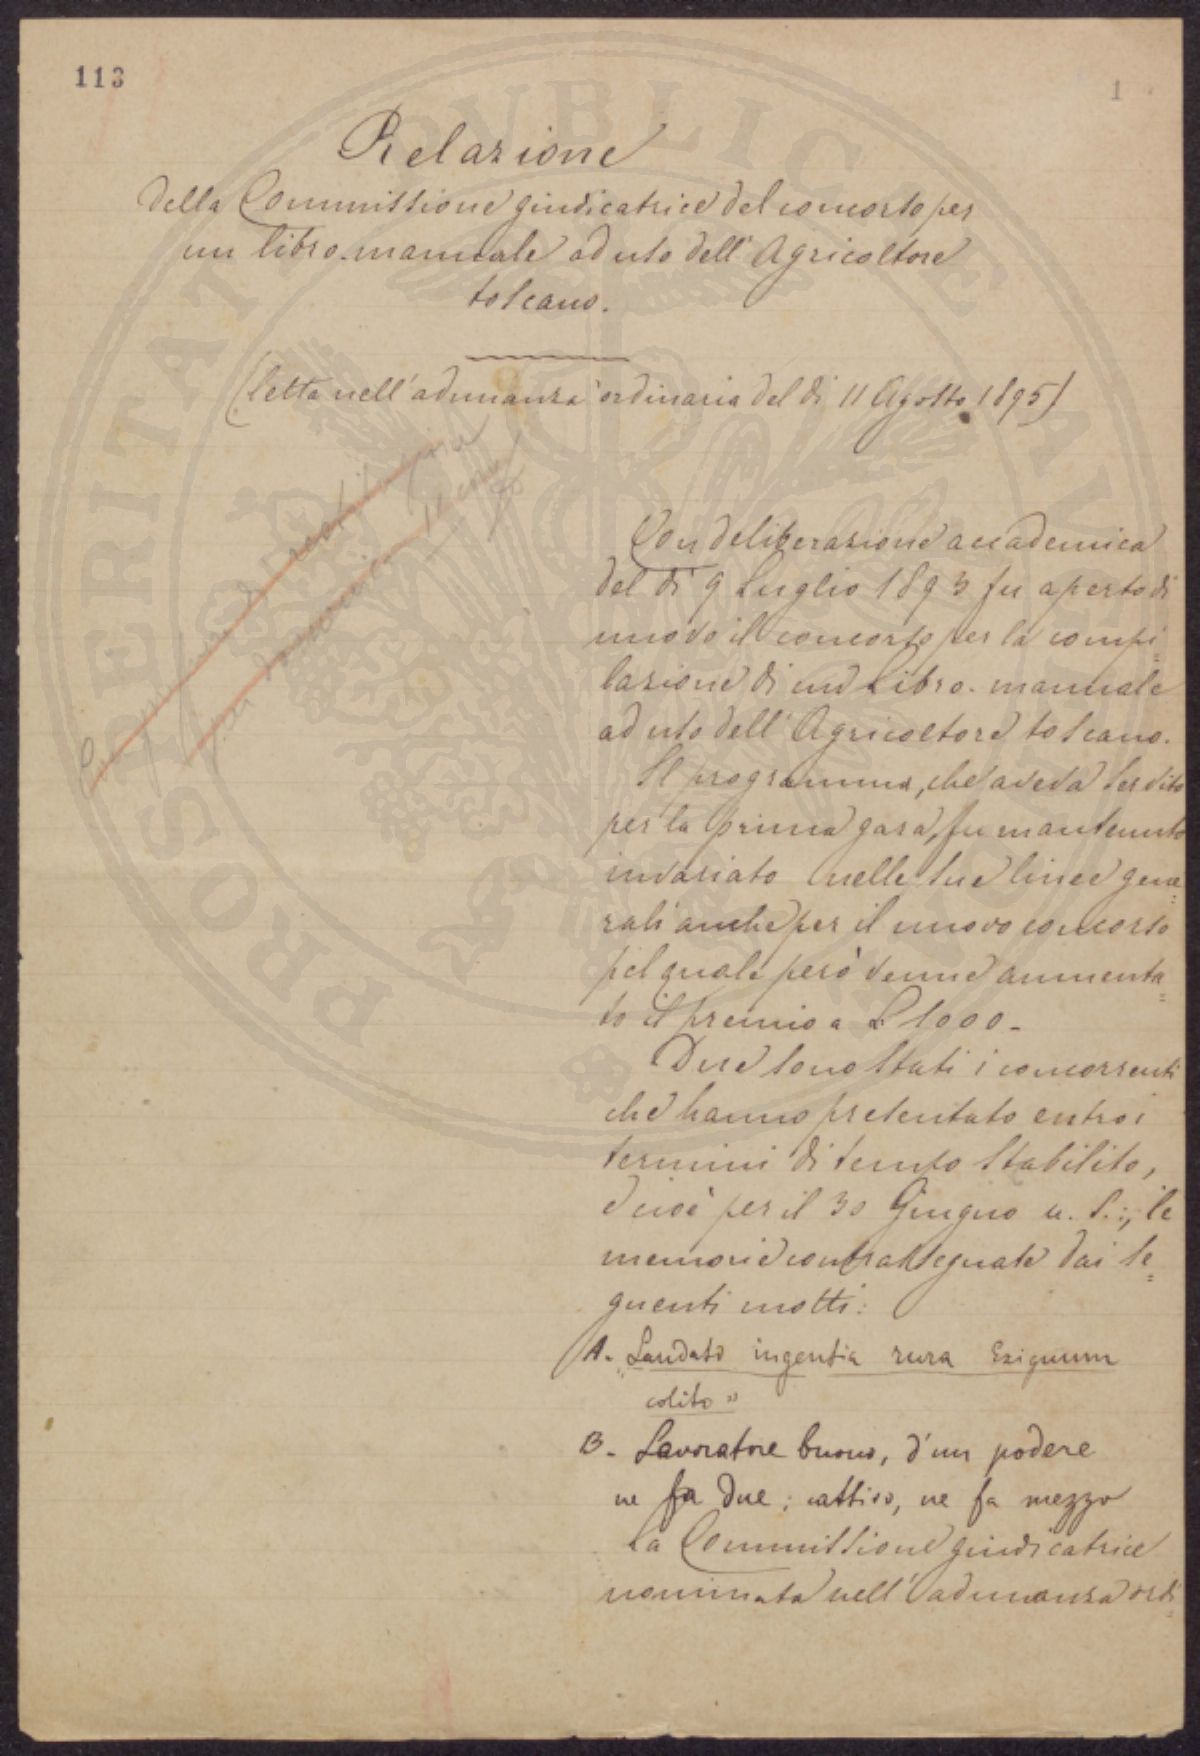 113
1
Relazione
della Commissione giudicatrice del concorso per
un libro-manuale ad uso dell'Agricoltore
toscano.
(letta nell'adunanza ordinaria del dì 11 Agosto 1895)
Con deliberazione accademica
del dì 9 Luglio 1893 fu aperto di
nuovo il concorso per la compi=
lazione di un Libro-manuale
ad uso dell'Agricoltore toscano.
Il programma, che aveva servito
per la prima gara, fu mantenuto
invariato nelle sue linee gene=
rali anche per il nuovo concorso
pel quale però venne aumenta=
to il premio a L 1000-
Due sono stati i concorrenti
che hanno presentato entro i
termini di tempo stabilito,
e cioè per il 30 Giugno u. s.:, le
memorie contrassegnate dai se=
guenti motti:
A. "Laudato ingentia rura Exiguum
colito"
B- Lavoratore buono, d'un podere
ne fa due; cattivo, ne fa mezzo
La Commissione giudicatrice
nominata nell'adunanza ordi=
PROSPERITATI PUBLICAE AUGENDAE